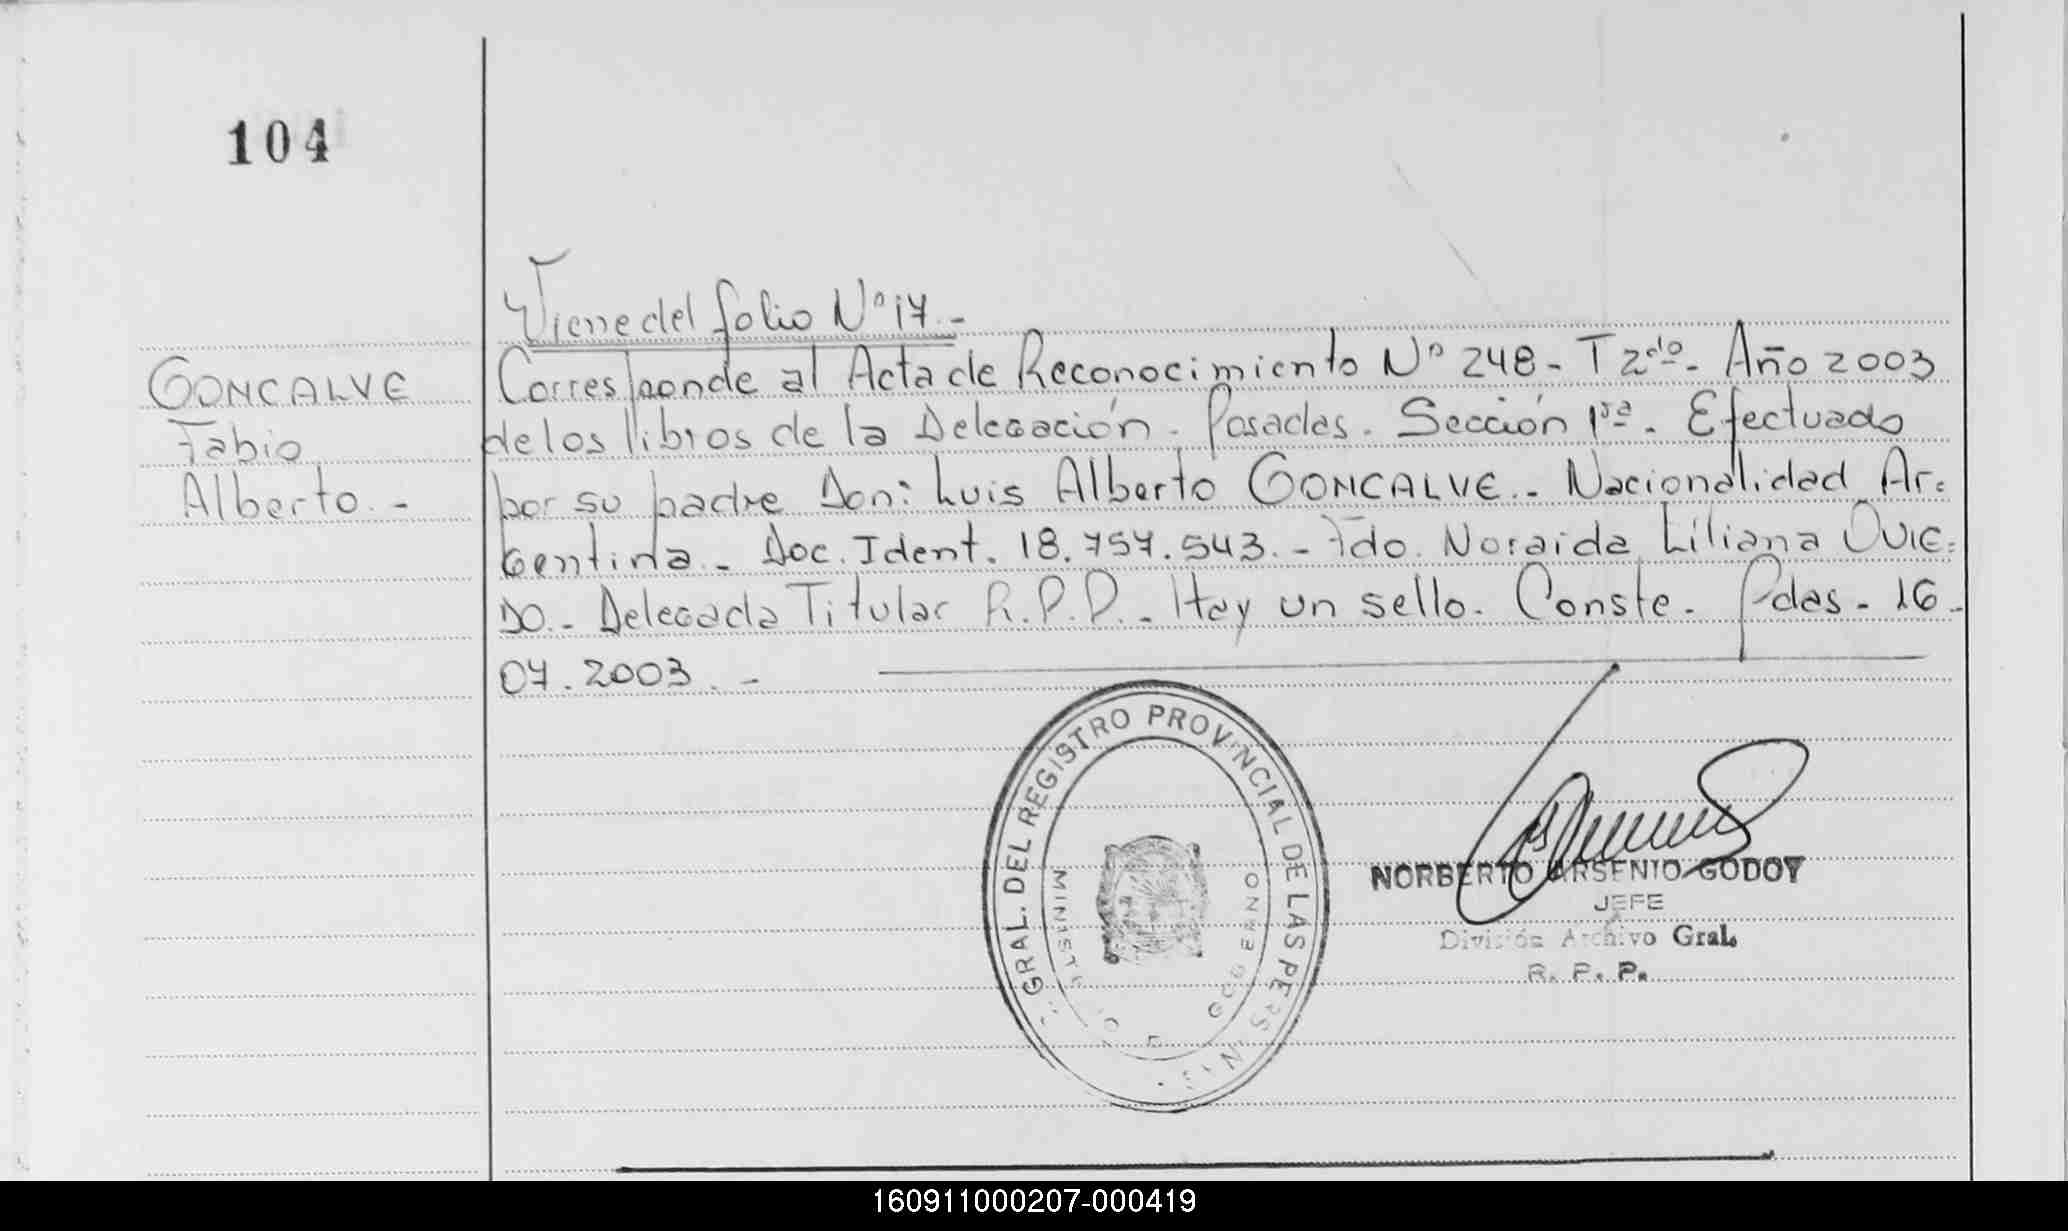 104
Viene del folio Nº 17.-
GONCALVE
Fabio
Alberto.-
Corresponde al Acta de Reconocimiento Nº 248- T 2do- Año 2003
de los libros de la Delegación. Posadas. Sección 1ra. Efectuado
por su padre Don: Luis Alberto GONCALVE.- Nacionalidad Ar-
gentina.- Doc. Ident. 18.757.543.- Fdo. Noraida Liliana OVIE-
DO.- Delegada Titular R.P.P.- Hay un sello. Conste.- Pdas- 16-
07.2003.-
GRAL. DEL REGISTRO PROVINCIAL DE LAS PERS
MINIST
GOBE NO
NORBERTO ARSENIO GODOY
JEFE
División Archivo Gral.
R. P. P.
160911000207-000419